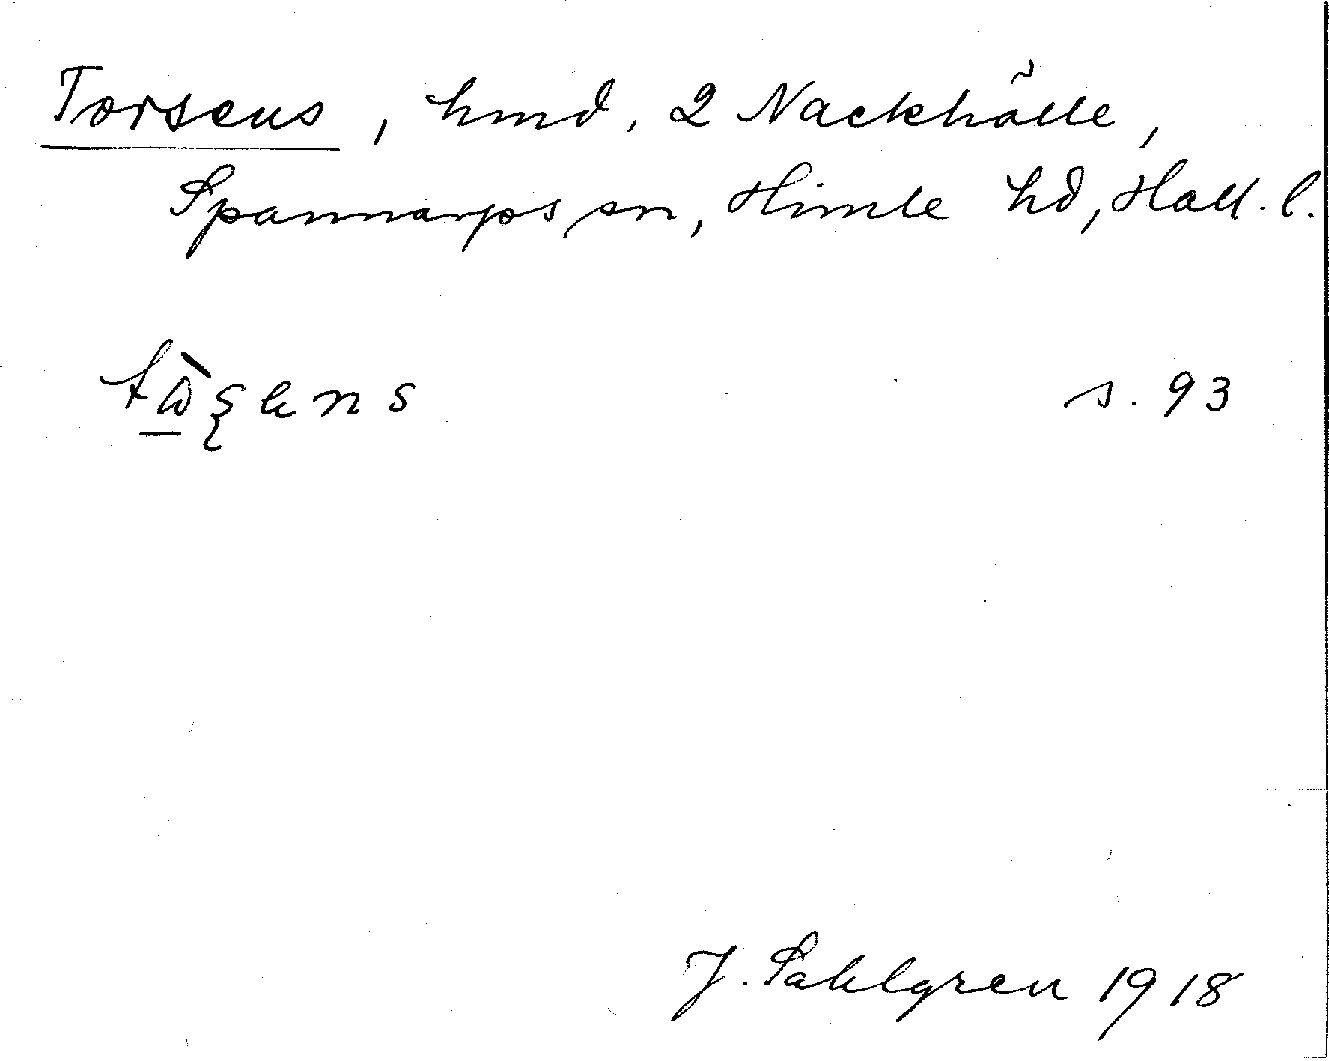 Torsens, hmd. 2 Nackhälle,
Spannarps sn, Himle hd, Hall. l.
s. 93
J. Sahlgren 1918